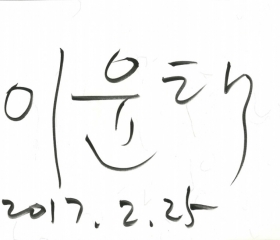 이윤택
2017. 2. 25